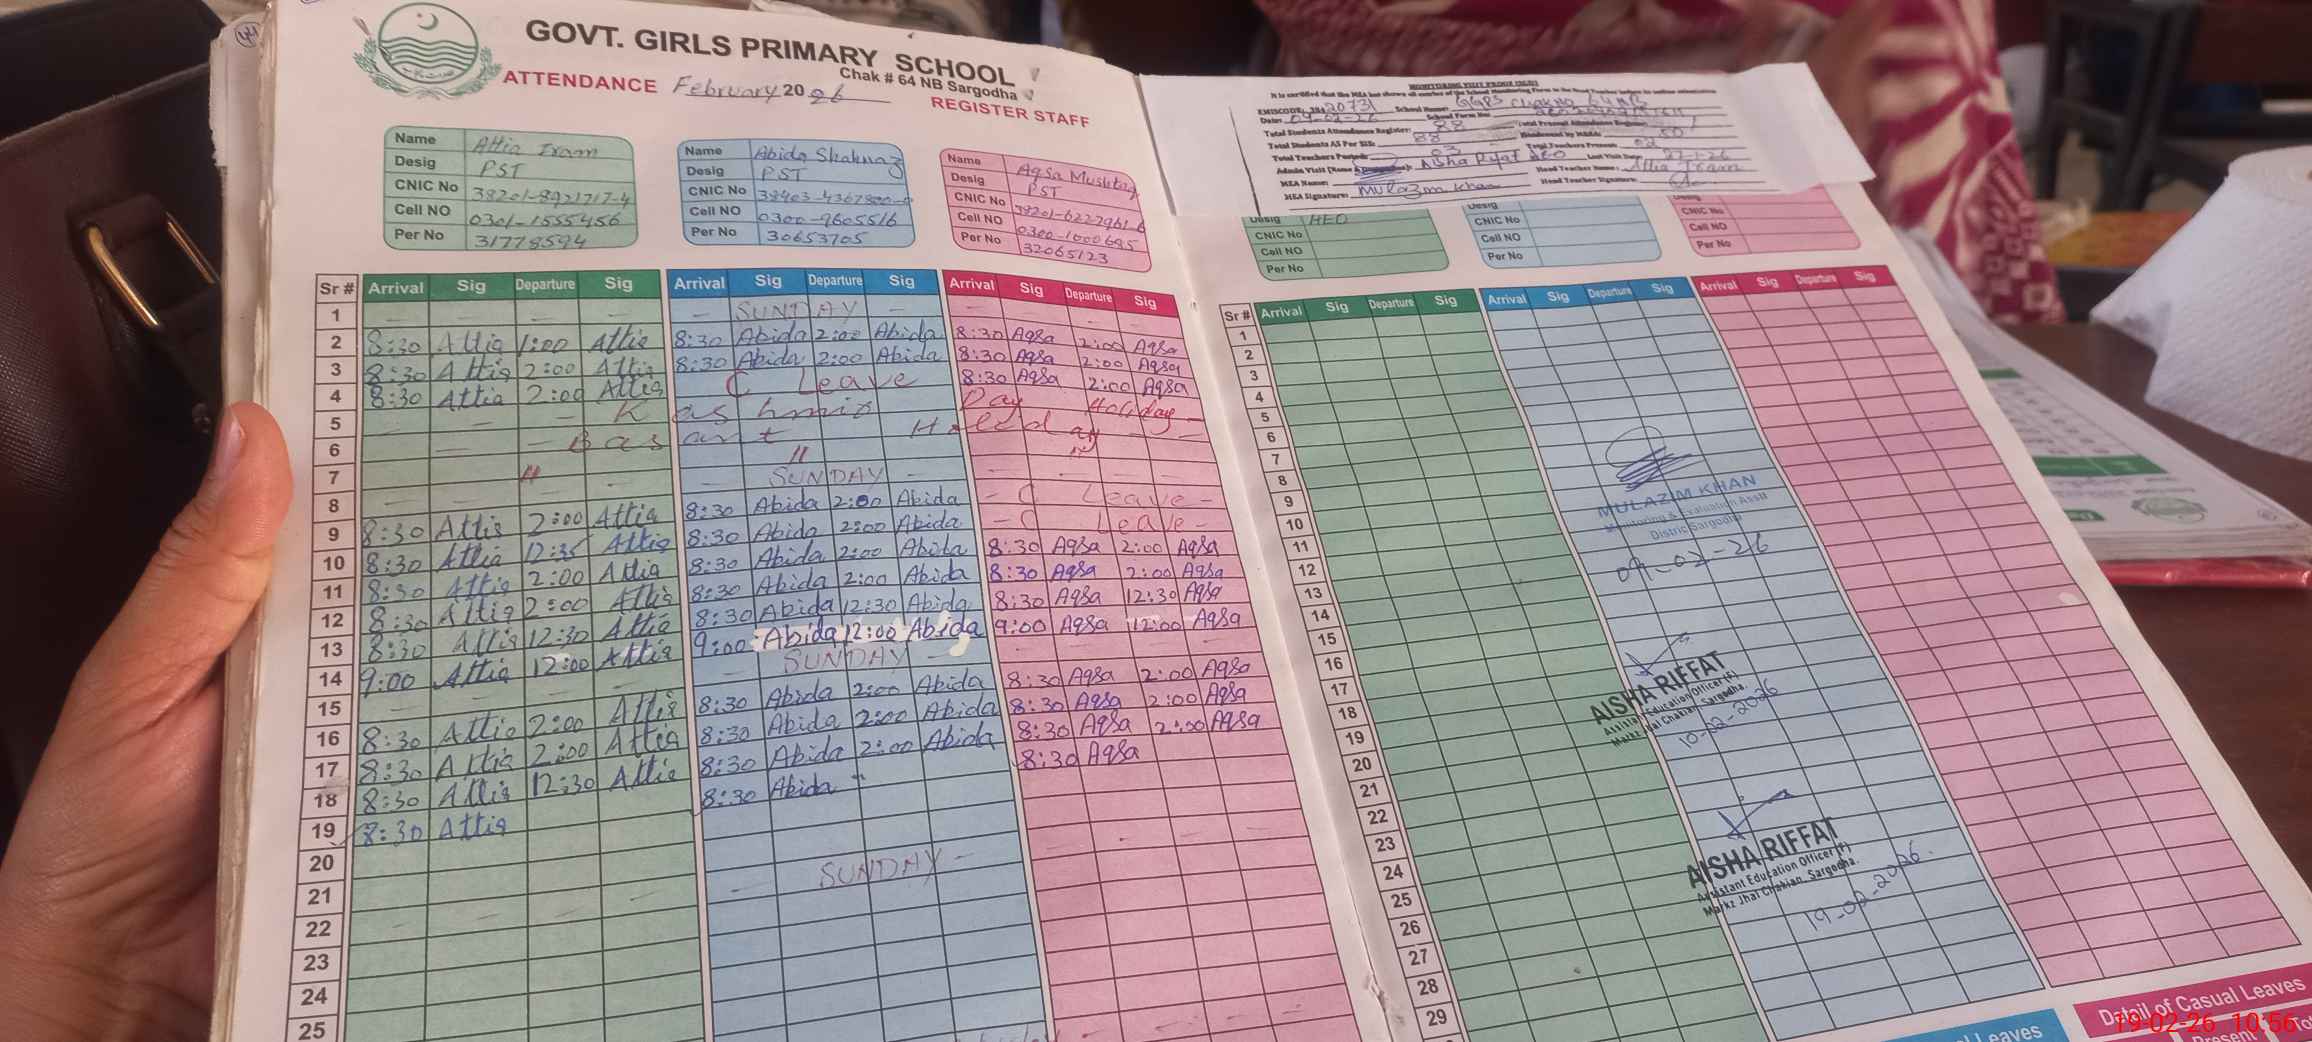 GOVT. GIRLS PRIMARY SCHOOL
Chak # 64 NB Sargodha
ATTENDANCE February 2026 REGISTER STAFF
Name Attia Iram
Desig PST
CNIC No 38201-8921717-4
Cell NO 0301-1555456
Per No 31778594
Name Abida Shahnaz
Desig PST
CNIC No 38403-4367800-
Cell NO 0300-9605516
Per No 30653705
Name Aqsa Mushtaq
Desig PST
CNIC No 38201-6227961-6
Cell NO 0300-1000685
Per No 32065123
Sr # Arrival Sig Departure Sig Arrival Sig Departure Sig Arrival Sig Departure Sig
1 SUNDAY
2 8:30 Attia 1:00 Attia 8:30 Abida 2:00 Abida 8:30 Aqsa 2:00 Aqsa
3 8:30 Attia 2:00 Attia 8:30 Abida 2:00 Abida 8:30 Aqsa 2:00 Aqsa
4 8:30 Attia 2:00 Attia C Leave 8:30 Aqsa 2:00 Aqsa
5 Kashmir Day Holiday
6 Basant Holiday
7 " " "
8 SUNDAY
9 8:30 Attia 2:00 Attia 8:30 Abida 2:00 Abida C Leave
10 8:30 Attia 12:35 Attia 8:30 Abida 2:00 Abida C Leave
11 8:30 Attia 2:00 Attia 8:30 Abida 2:00 Abida 8:30 Aqsa 2:00 Aqsa
12 8:30 Attia 2:00 Attia 8:30 Abida 2:00 Abida 8:30 Aqsa 2:00 Aqsa
13 8:30 Attia 12:30 Attia 8:30 Abida 12:30 Abida 8:30 Aqsa 12:30 Aqsa
14 9:00 Attia 12:00 Attia 9:00 Abida 12:00 Abida 9:00 Aqsa 12:00 Aqsa
15 SUNDAY
16 8:30 Attia 2:00 Attia 8:30 Abida 2:00 Abida 8:30 Aqsa 2:00 Aqsa
17 8:30 Attia 2:00 Attia 8:30 Abida 2:00 Abida 8:30 Aqsa 2:00 Aqsa
18 8:30 Attia 12:30 Attia 8:30 Abida 2:00 Abida 8:30 Aqsa 2:00 Aqsa
19 8:30 Attia 8:30 Abida 8:30 Aqsa
20
21
22 SUNDAY
23
24
25
MONITORING VISIT PROOF
It is certified that the MEA has shown all entries of the School Monitoring Form to the Head Teacher before
EMISCODE: 38420731 School Name: GGPS Chak No 64 NB
Date: 09-02-26 School Form No:
Total Students Attendance Register: 88
Total Students AS Per SIS: 88 50
Total Teachers Posted: 03 Total Teachers Present: 02
Admin Visit (Name & Designation): Aisha Rifat AEO Last Visit Date: 27-1-26
MEA Name: Head Teacher Name: Attia Iram
MEA Signature: Mulazm Khan Head Teacher Signature:
Desig AEO
CNIC No
Cell NO
Per No
Desig
CNIC No
Cell NO
Per No
Desig
CNIC No
Cell NO
Per No
Sr # Arrival Sig Departure Sig Arrival Sig Departure Sig Arrival Sig Departure Sig
1
2
3
4
5
6
7
8
9
10
11
12
13
14
15
16
17
18
19
20
21
22
23
24
25
26
27
28
29
MULAZIM KHAN
Monitoring & Evaluation Asstt
District Sargodha
09-02-26
AISHA RIFFAT
Assistant Education Officer (F)
Markz Jhal Chakian, Sargodha.
10-02-2026
AISHA RIFFAT
Assistant Education Officer (F)
Markz Jhal Chakian, Sargodha.
19-02-2026.
Leaves
Detail of Casual Leaves
Present
19-02-26 10:56